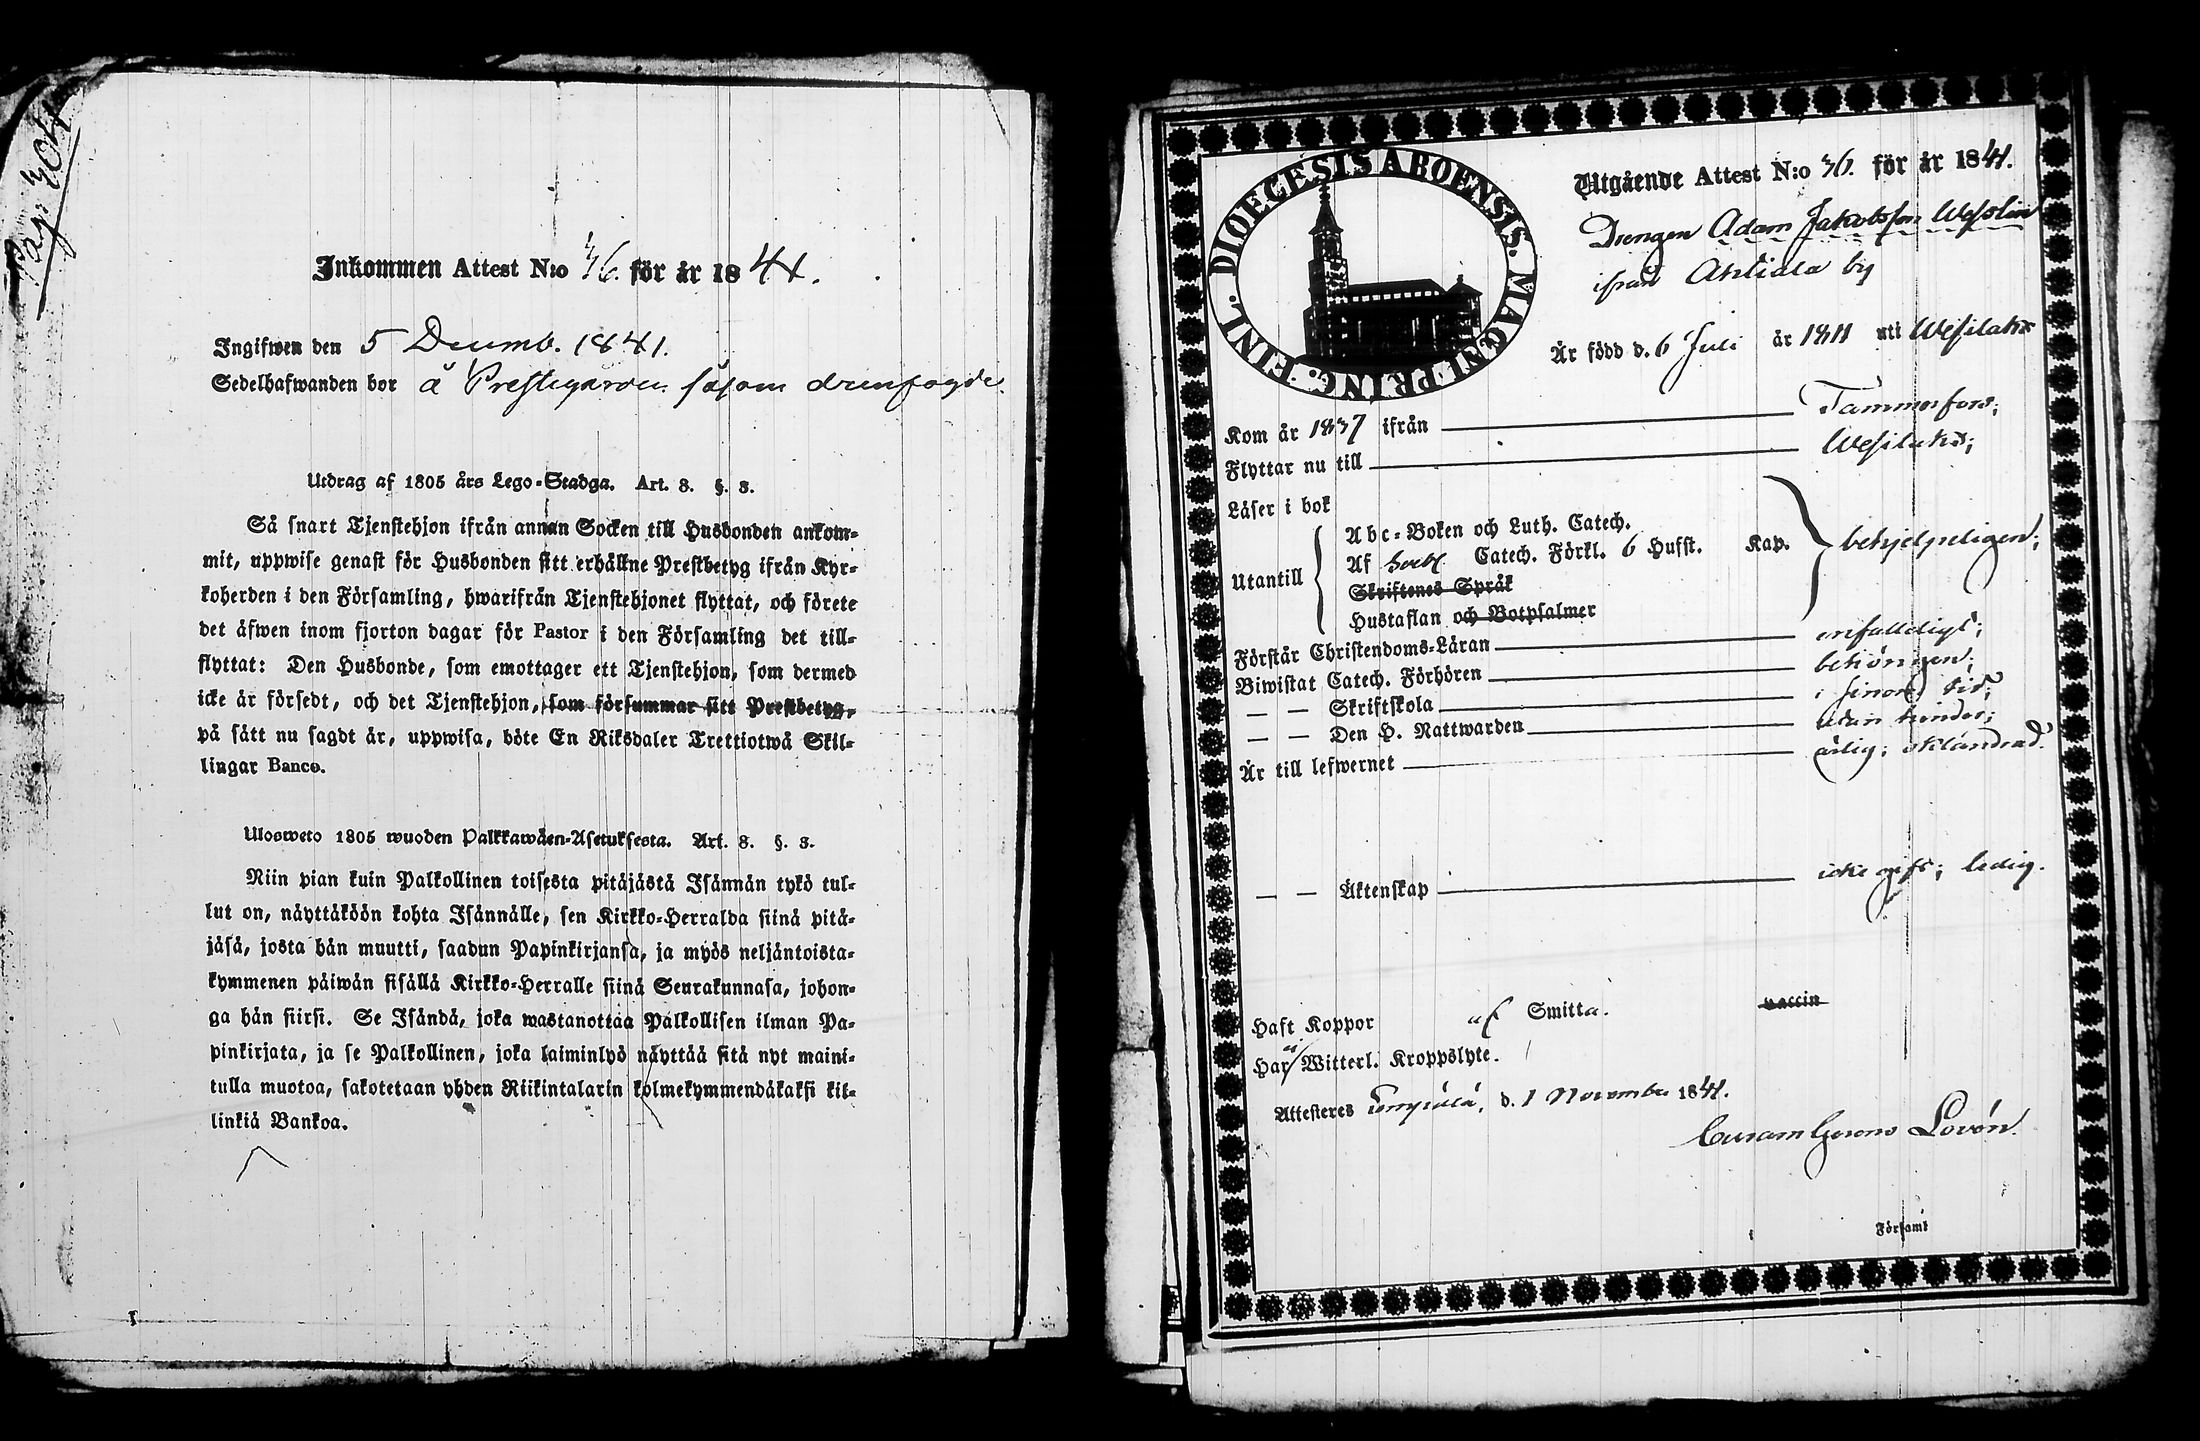 Pag. 704
Inkommen Attest N:o 36. för år 1841.
Ingifwen den 5 Decemb. 1841.
Sedelhafwanden bor å Prestegården såsom drengfogde.
Utdrag af 1805 års Lego-Stadga. Art. 3. §. 3.
Så snart Tjenstehjon ifrån annan Socken till Husbonden ankom-
mit, uppwise genast för Husbonden sitt erhållne Prestbetyg ifrån Kyr-
koherden i den Församling, hwarifrån Tjenstehjonet flyttat, och förete
det äfwen inom fjorton dagar för Pastor i den Församling det till-
flyttat: Den Husbonde, som emottager ett Tjenstehjon, som dermed
icke är försedt, och det Tjenstehjon, som försummar sitt Prestbetyg,
på sätt nu sagdt är, uppwisa, böte En Riksdaler Trettiotwå Skil-
lingar Banco.
Ulosweto 1805 wuoden Palkkawäen-Asetuksesta. Art. 3. §. 3.
Niin pian kuin Palkollinen toisesta pitäjästä Isännän tykö tul-
lut on, näyttäköön kohta Isännälle, sen Kirkko-Herralda siinä pitä-
jäsä, josta hän muutti, saadun Papinkirjansa, ja myös neljäntoista-
kymmenen päiwän sisällä Kirkko-Herralle siinä Seurakunnasa, johon-
ga hän siirsi. Se Isändä, joka wastanottaa Palkollisen ilman Pa-
pinkirjata, ja se Palkollinen, joka laiminlyö näyttää sitä nyt maini-
tulla muotoa, sakotetaan yhden Riikintalarin kolmekymmendäkaksi kil-
linkiä Bankoa.
DIOECESIS ABOENSIS. MAGNI PRINC. FINL.
Utgående Attest N:o 36. för år 1841.
Drengen Adam Jakobsson Wesslin
ifrån Ahtiala by
Är född d. 6 Juli år 1811 uti Wesilaks
Kom år 1837 ifrån Tammerfors;
Flyttar nu till Wesilaks;
Läser i bok
Utantill
Abc-Boken och Luth. Catech.
Af Catech. Förkl. 6 Hufst. Kap. behjelpeligen;
Skriftenes Språk
Hustaflan och Botpsalmer
Förstår Christendoms-Läran enfalldigt;
Biwistat Catech. Förhören behörigen;
— — Skriftskola i sinom tid;
— — Den H. Nattwarden utan hinder;
Är till lefwernet ärlig; oklandrad.
— — Äktenskap icke gift; ledig.
Haft Koppor af Smitta. vaccin
Har ej Witterl. Kroppslyte.
Attesteres Lempäälä, d. 1 November 1841.
Curam Gerens Lovén.
Församl